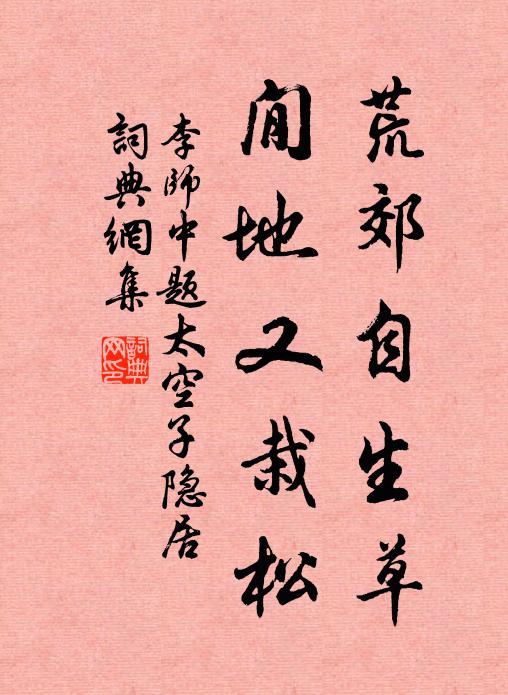 荒郊自生草
閒地又栽松
李師中題太空子隐居
詞典網集
詞典網印